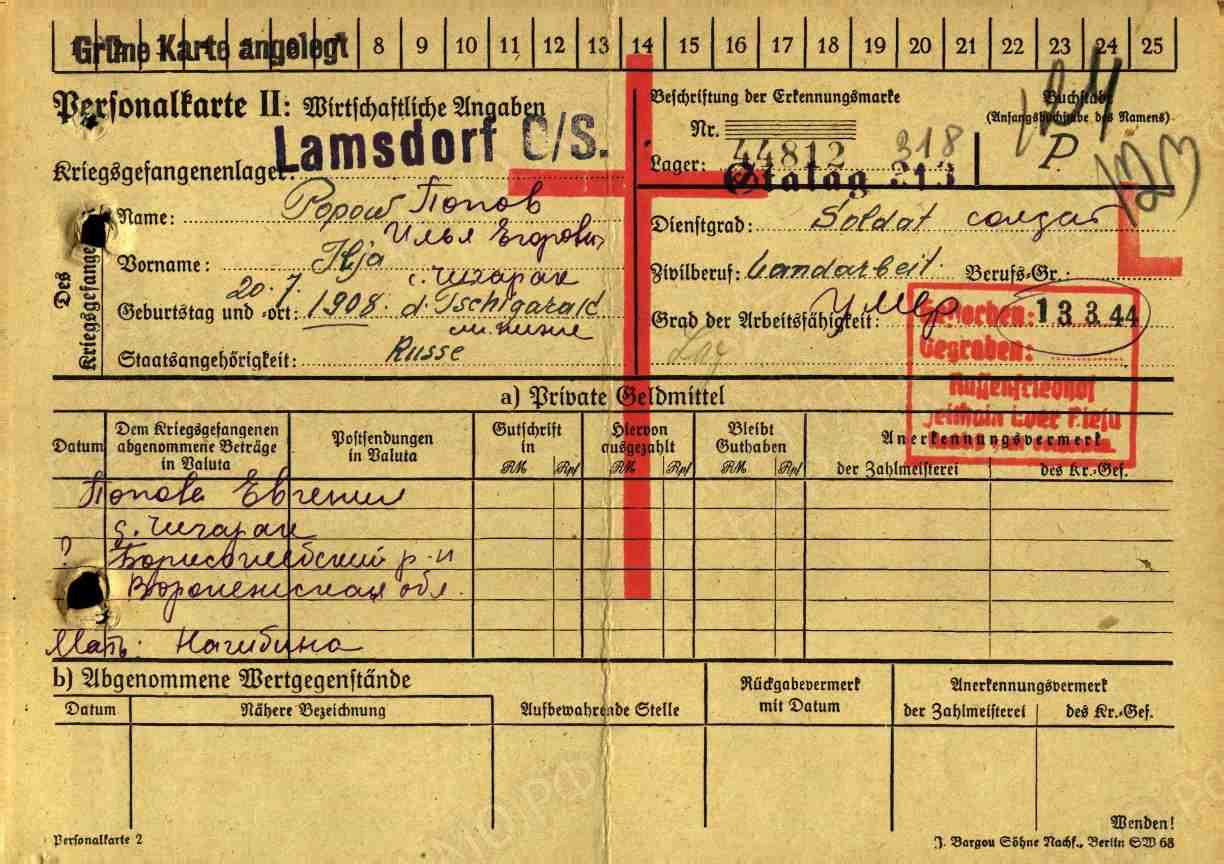 Grüne Karte angelegt 8 9 10 11 12 13 14 15 16 17 18 19 20 21 22 23 24 25
Personalkarte II: Wirtschaftliche Angaben
Beschriftung der Erkennungsmarke
Buchstabe
(Anfangsbuchstabe des Namens)
Nr. 44812 318
P.
123
Lamsdorf O/S.
Kriegsgefangenenlager:
Lager: Stalag
Des Kriegsgefangenen
Name: Popow Попов
Илья Егорович
Vorname: Ilja
с. Чигарак
Geburtstag und -ort: 20.7. 1908. d. Tschigarak
Staatsangehörigkeit: Russe
Dienstgrad: Soldat солдат
Zivilberuf: Landarbeit. Berufs-Gr.:
Grad der Arbeitsfähigkeit: Умер
Gestorben: 13 3 44
Begraben:
Russenfriedhof
Zeithain über Riesa
a) Private Geldmittel
Datum
Dem Kriegsgefangenen abgenommene Beträge in Valuta
Postsendungen in Valuta
Gutschrift in RM Rpf
Hiervon ausgezahlt RM Rpf
Bleibt Guthaben RM Rpf
Anerkennungsvermerk
der Zahlmeisterei des Kr.-Gef.
Попова Евгения
д. Чигарак
? Борисоглебский р-н
Воронежская обл.
Мать: Нагибина
b) Abgenommene Wertgegenstände
Datum
Nähere Bezeichnung
Aufbewahrende Stelle
Rückgabevermerk mit Datum
Anerkennungsvermerk
der Zahlmeisterei des Kr.-Gef.
Wenden!
Personalkarte 2
J. Bargou Söhne Nachf., Berlin SW 68